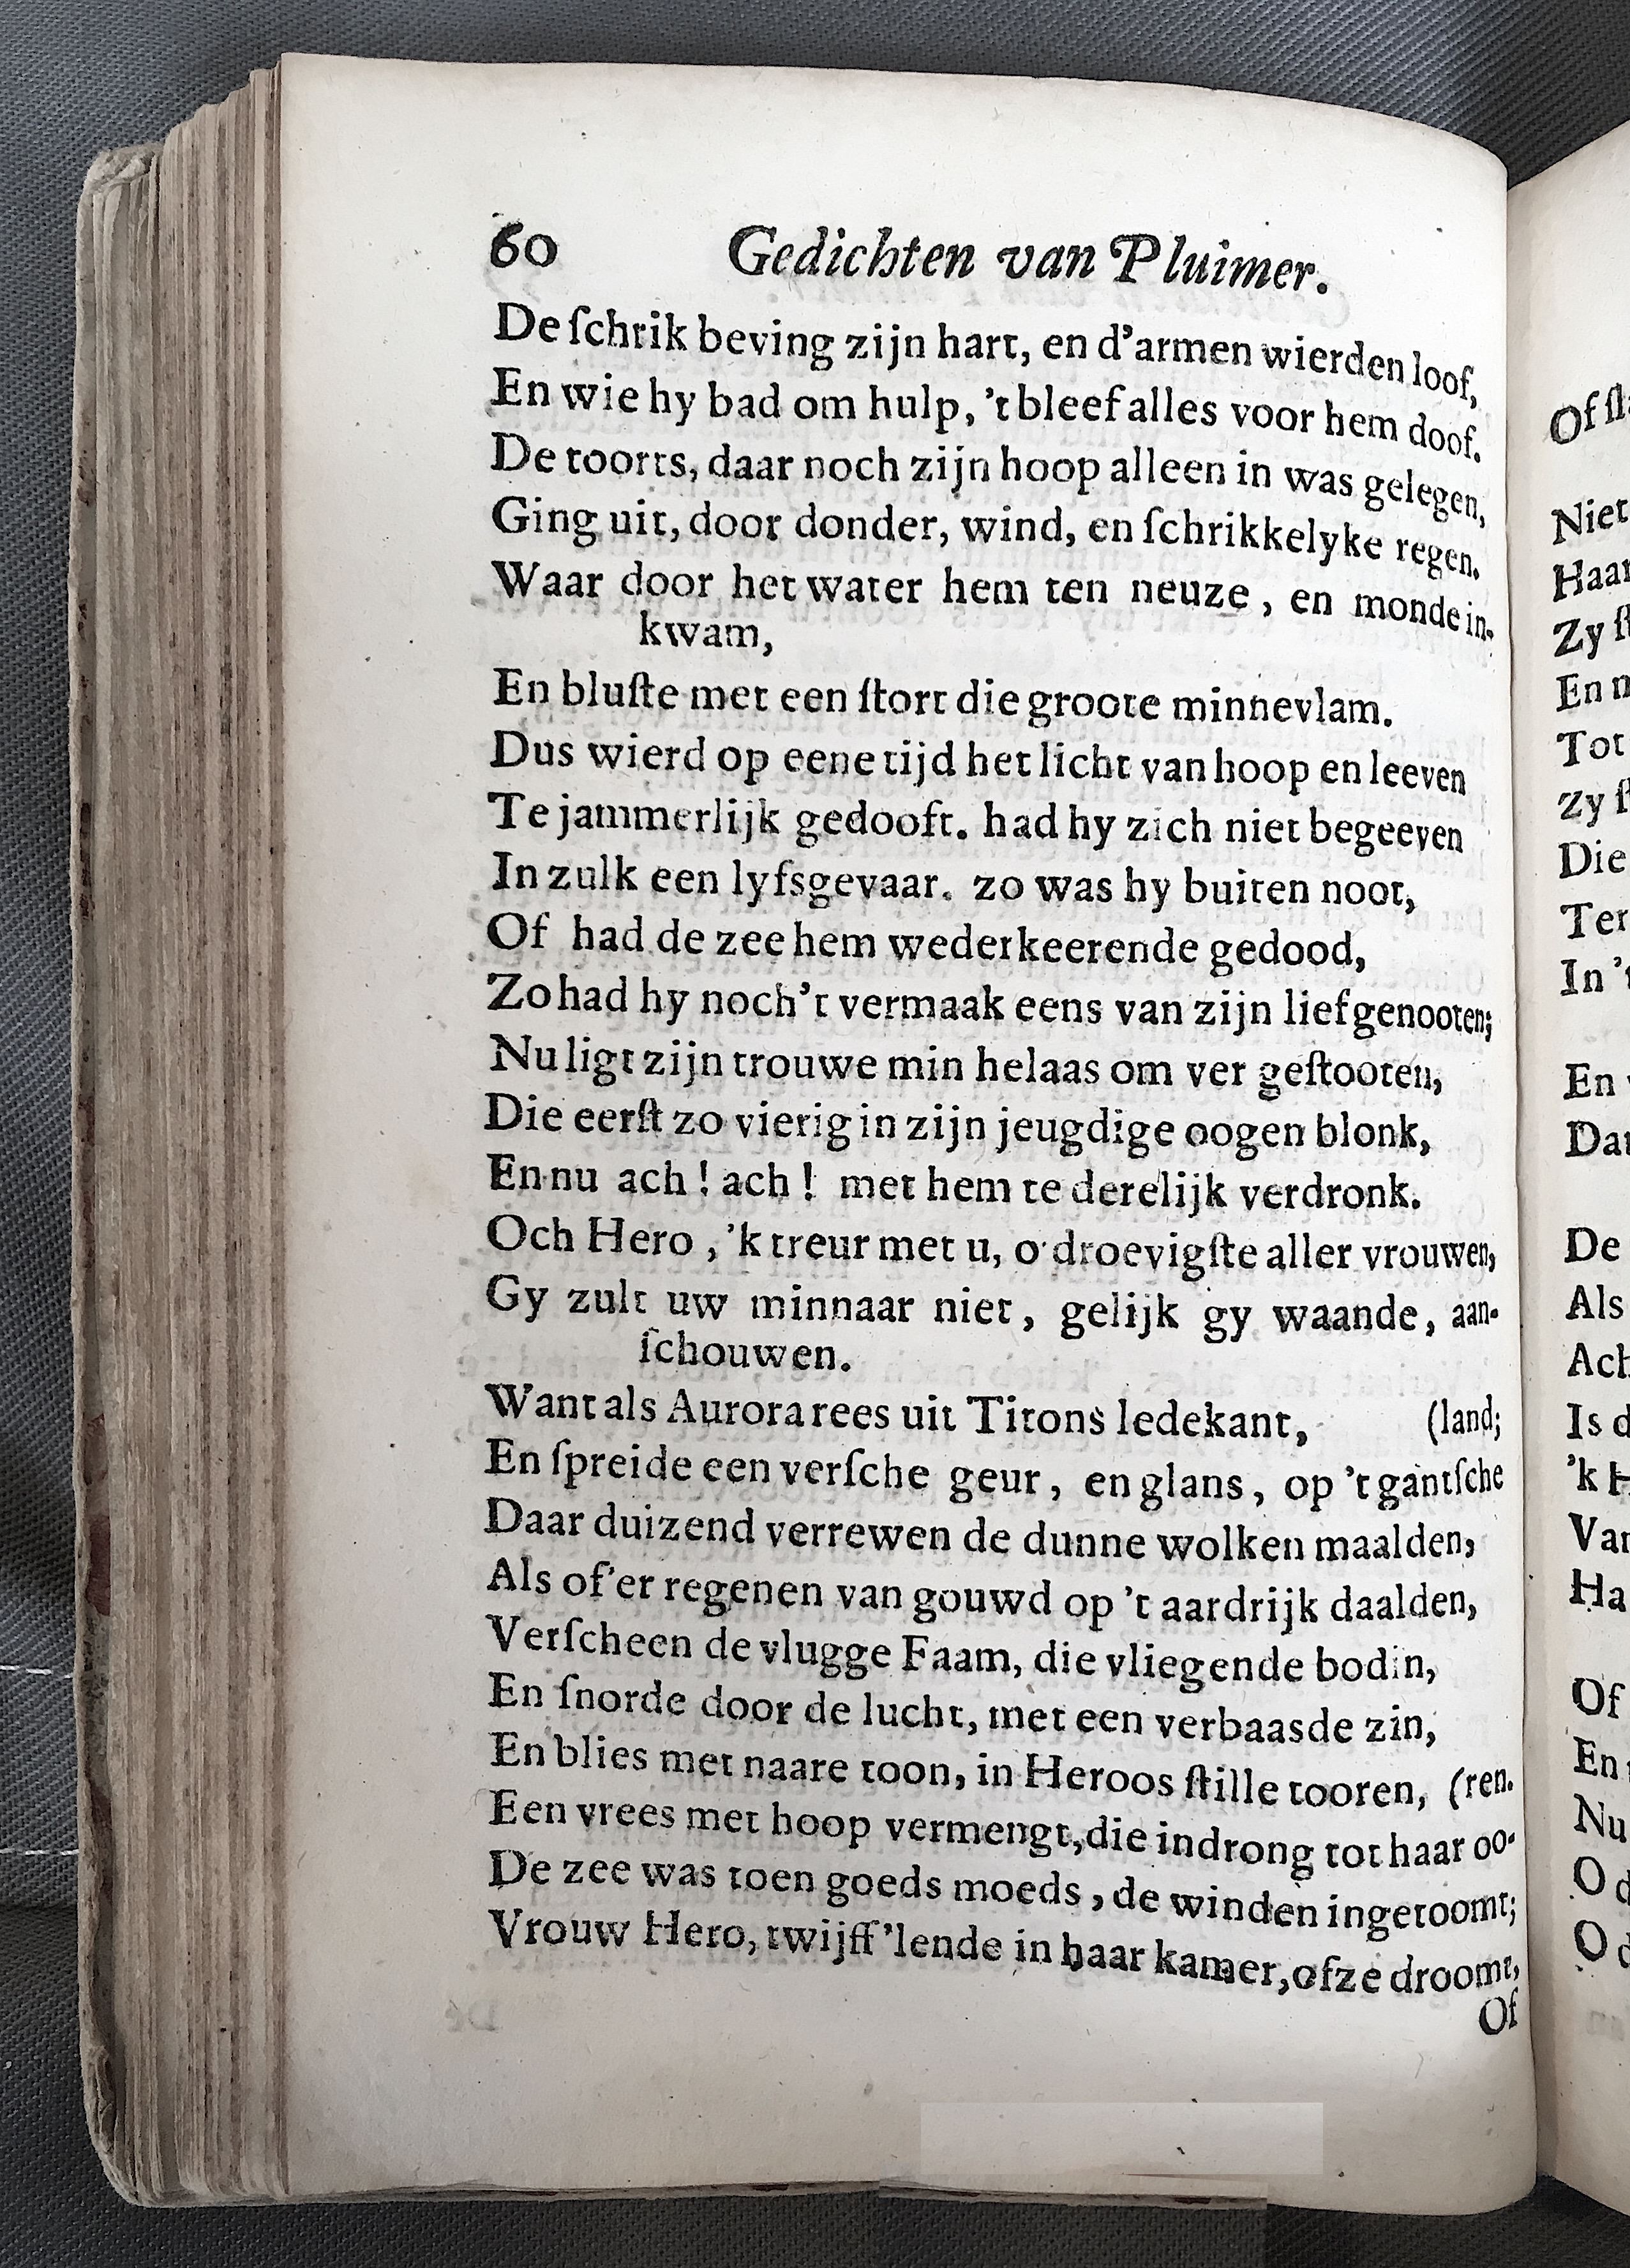 60 Gedichten van Pluimer.
De ſchrik beving zijn hart, en d'armen wierden loof,
En wie hy bad om hulp, 't bleef alles voor hem doof.
De toorts, daar noch zijn hoop alleen in was gelegen,
Ging uit, door donder, wind, en ſchrikkelyke regen.
Waar door het water hem ten neuze, en monde in-
kwam,
En bluſte met een ſtort die groote minnevlam.
Dus wierd op eene tijd het licht van hoop en leeven
Te jammerlijk gedooft. had hy zich niet begeeven
In zulk een lyfsgevaar. zo was hy buiten noot,
Of had de zee hem wederkeerende gedood,
Zo had hy noch 't vermaak eens van zijn lief genooten;
Nu ligt zijn trouwe min helaas om ver geſtooten,
Die eerſt zo vierig in zijn jeugdige oogen blonk,
En nu ach! ach! met hem te derelijk verdronk.
Och Hero, 'k treur met u, o droevigſte aller vrouwen,
Gy zult uw minnaar niet, gelijk gy waande, aan-
ſchouwen.
Want als Aurora rees uit Titons ledekant, (land;
En ſpreide een verſche geur, en glans, op 't gantſche
Daar duizend verrewen de dunne wolken maalden,
Als of'er regenen van gouwd op 't aardrijk daalden,
Verſcheen de vlugge Faam, die vliegende bodin,
En ſnorde door de lucht, met een verbaasde zin,
En blies met naare toon, in Heroos ſtille tooren, (ren.
Een vrees met hoop vermengt, die indrong tot haar oo-
De zee was toen goeds moeds, de winden ingetoomt;
Vrouw Hero, twijff'lende in haar kamer, ofze droomt,
Of
Of
Niet
Zy
En
Tot
Zy
Die
Ter
In
En
De
Als
Is
'k
Of
En
Nu
O
O